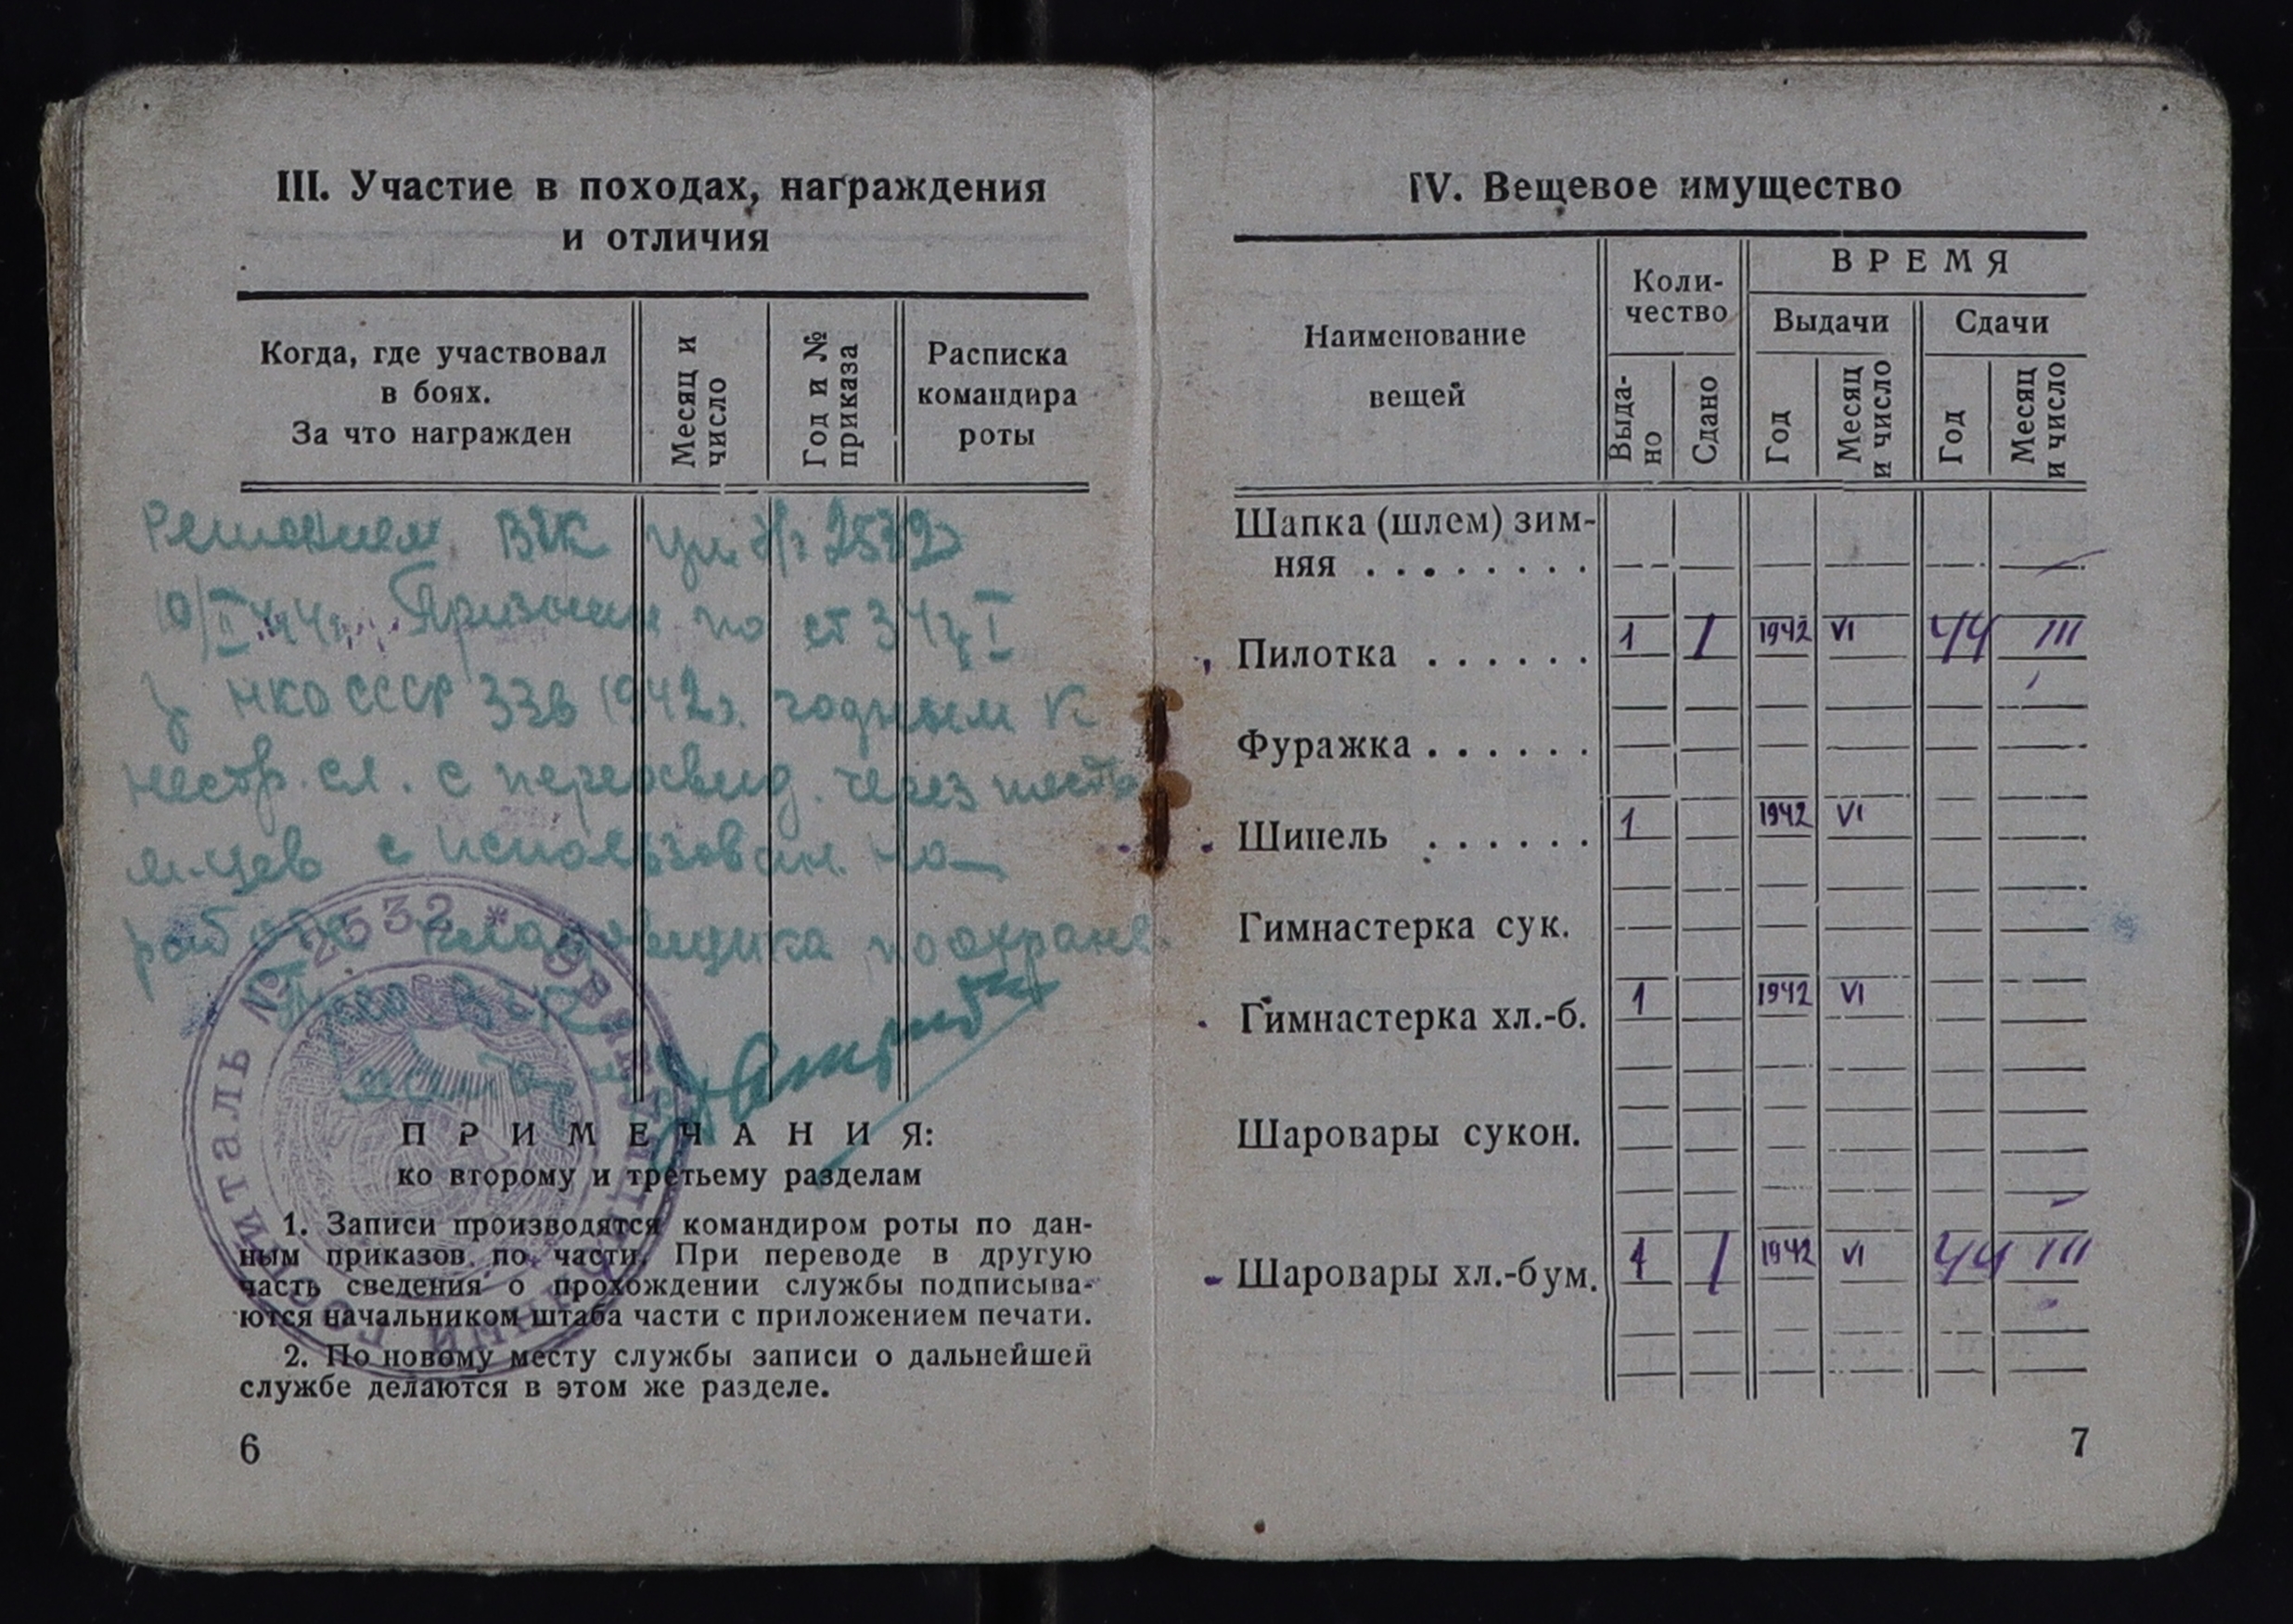 III. Участие в походах, награждения
и отличия
Когда, где участвовал
в боях.
За что награжден
Месяц и
число
Год и №
приказа
Расписка
командира
роты
Решением ВВК при э/г 2532
10/II 44г. Признан по ст 34г I
НКО СССР 336 1942г. годным к
нестр. сл. с переосвид. через шесть
м-цев с использован. на
работе кладовщика по охране
ГОСПИТАЛЬ № 2532 *
П Р И М Е Ч А Н И Я:
ко второму и третьему разделам
1. Записи производятся командиром роты по дан-
ным приказов по части. При переводе в другую
часть сведения о прохождении службы подписыва-
ются начальником штаба части с приложением печати.
2. По новому месту службы записи о дальнейшей
службе делаются в этом же разделе.
6
IV. Вещевое имущество
Наименование
вещей
Коли-
чество
ВРЕМЯ
Выдачи
Сдачи
Выда-
но
Сдано
Год
Месяц
и число
Год
Месяц
и число
Шапка (шлем) зим-
няя . . . . . . . .
Пилотка . . . . . . 1 1 1942 VI 44 III
Фуражка . . . . . .
Шинель . . . . . . 1 1942 VI
Гимнастерка сук.
Гимнастерка хл.-б. 1 1942 VI
Шаровары сукон.
Шаровары хл.-бум. 1 1 1942 VI 44 III
7